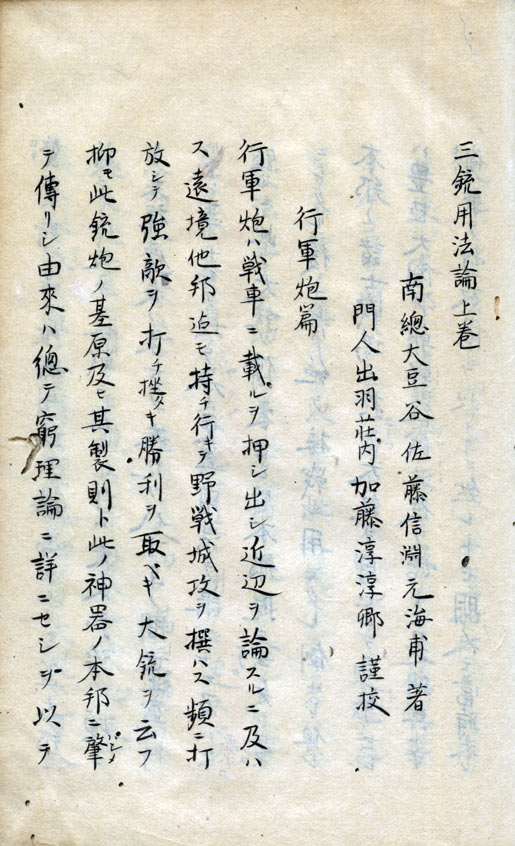 三銃用法論上巻
南總大豆谷佐藤信淵元海甫著
門人出羽莊内加藤淳淳郷謹挍
行軍炮篇
行軍炮ハ戦車ニ載ルヲ押シ出シ近辺ヲ論スルニ及ハ
ス遠境他邦迠モ持チ行キテ野戦城攻ヲ撰ハス頻ニ打
放シテ強敵ヲ打チ挫キ勝利ヲ取ベキ大銃ヲ云フ
抑モ此銃炮ノ基原及ヒ其製則ト此ノ神器ノ本邦ニ肇メ
テ傳リシ由來ハ總テ窮理論ニ詳ニセシヲ以テ